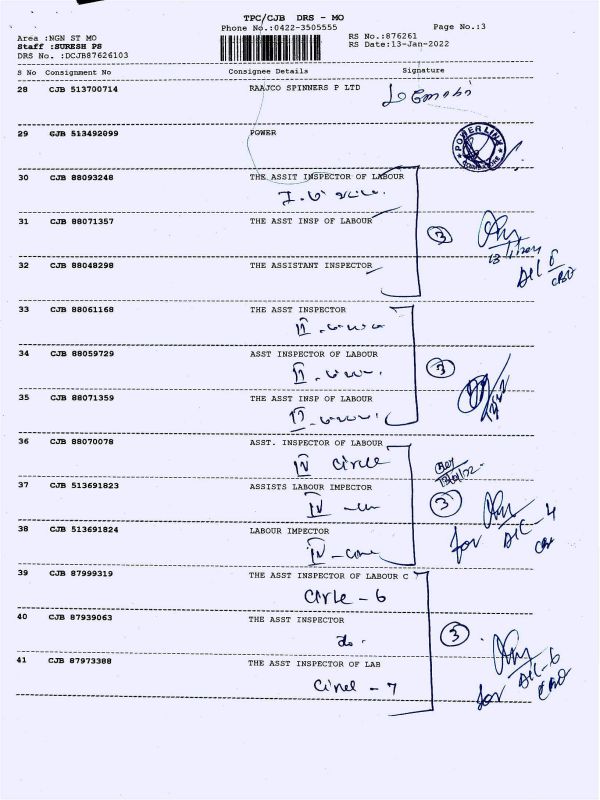 TPC/CJB DRS - MO
Phone No.:0422-3505555
Page No.:3
Area :NGN ST MO
RS No.:876261
Staff :SURESH PS
RS Date:13-Jan-2022
DRS No. :DCJB87626103
S No Consignment No Consignee Details Signature
28 CJB 513700714 RAAJCO SPINNERS P LTD
29 CJB 513492099 POWER
POWER LINK
30 CJB 88093248 THE ASSIT INSPECTOR OF LABOUR
31 CJB 88071357 THE ASST INSP OF LABOUR
3
32 CJB 88048298 THE ASSISTANT INSPECTOR
33 CJB 88061168 THE ASST INSPECTOR
II
34 CJB 88059729 ASST INSPECTOR OF LABOUR
II
3
35 CJB 88071359 THE ASST INSP OF LABOUR
II
36 CJB 88070078 ASST. INSPECTOR OF LABOUR
IV circle
37 CJB 513691823 ASSISTS LABOUR IMPECTOR
IV
3
38 CJB 513691824 LABOUR IMPECTOR
IV
for
39 CJB 87999319 THE ASST INSPECTOR OF LABOUR C
Cirle - 6
40 CJB 87939063 THE ASST INSPECTOR
do.
3
41 CJB 87973388 THE ASST INSPECTOR OF LAB
- 7
for